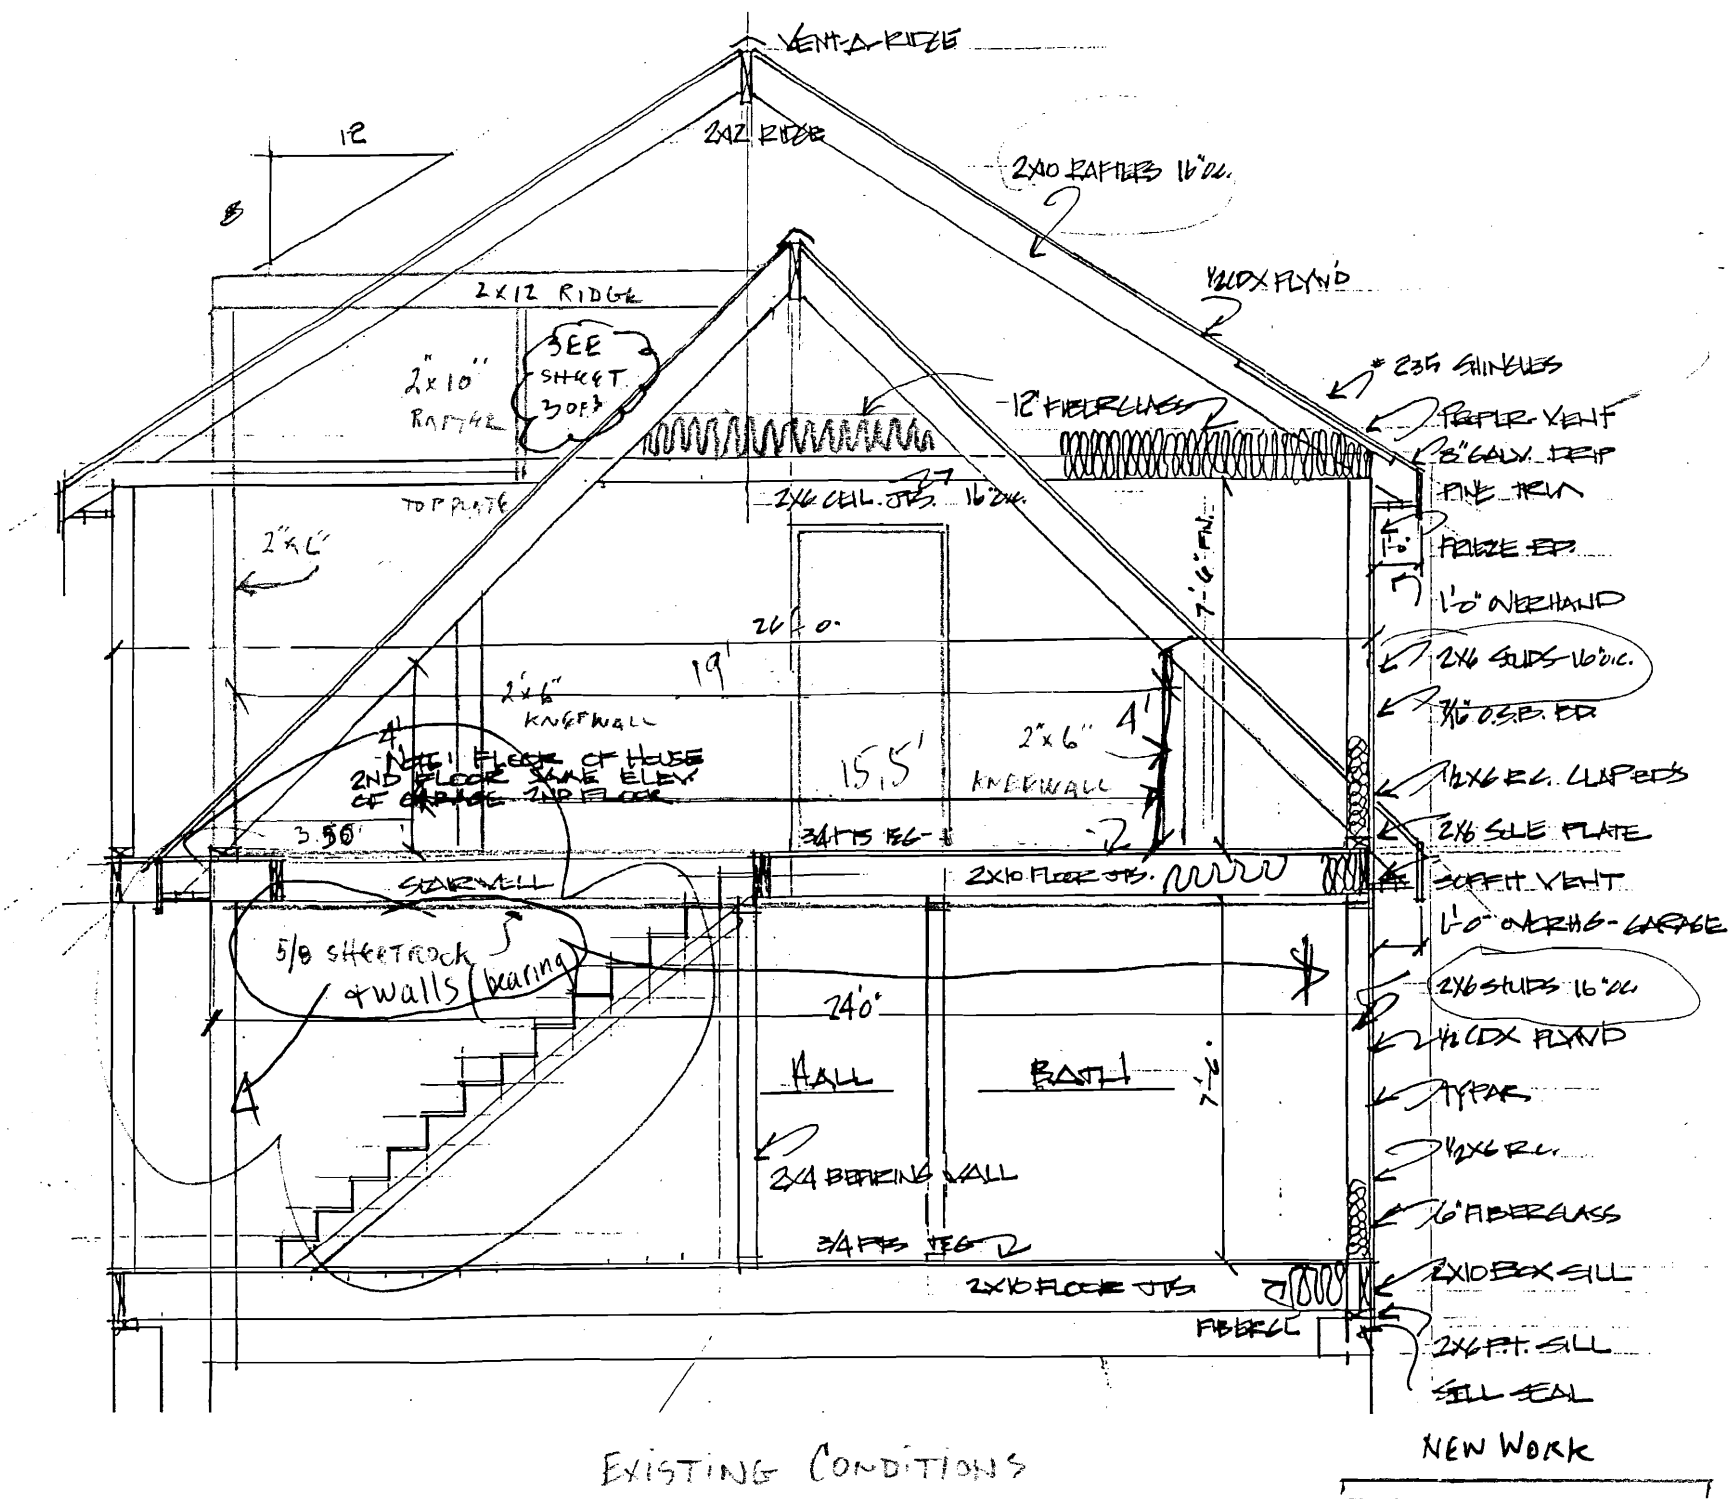 VENT-A-RIDGE
12
8
2X12 RIDGE
2X10 RAFTERS 16"OC.
1/2 CDX PLYW'D
2X12 RIDGE
SEE
SHEET
3 OF 3
2"x10"
RAFTER
# 235 SHINGLES
12" FIBERGLASS
PROPER-VENT
8" GALV. DRIP
PINE TRIM
TOP PLATE
2X6 CEIL. JTS. 16"OC.
2"x6"
7'-6" FIN.
1'-0"
FRIEZE BD.
1'-0" OVERHAND
26'-0"
19'
2X6 STUDS-16"O.C.
7/16" O.S.B. BD.
2"x6"
KNEEWALL
4'
4'
2"x6"
KNEEWALL
15.5'
NOTE! FLOOR OF HOUSE
2ND FLOOR SAME ELEV
OF GARAGE 2ND FLOOR
1/2X6 R.C. CLAPBD'S
2X6 SOLE PLATE
3.50'
STAIRWELL
2X10 FLOOR JTS.
SOFFIT VENT
1'-0" OVERHG-GARAGE
5/8 SHEETROCK
+ walls (bearing)
24'0"
2X6 STUDS 16"OC.
1/2 CDX PLYW'D
HALL
BATH
TYPAR
1/2X6 R.C.
2X4 BEARING WALL
6" FIBERGLASS
2X10 FLOOR JTS.
2X10 BOX SILL
FIBERGL
2X6 P.T. SILL
SILL SEAL
EXISTING CONDITIONS
NEW WORK